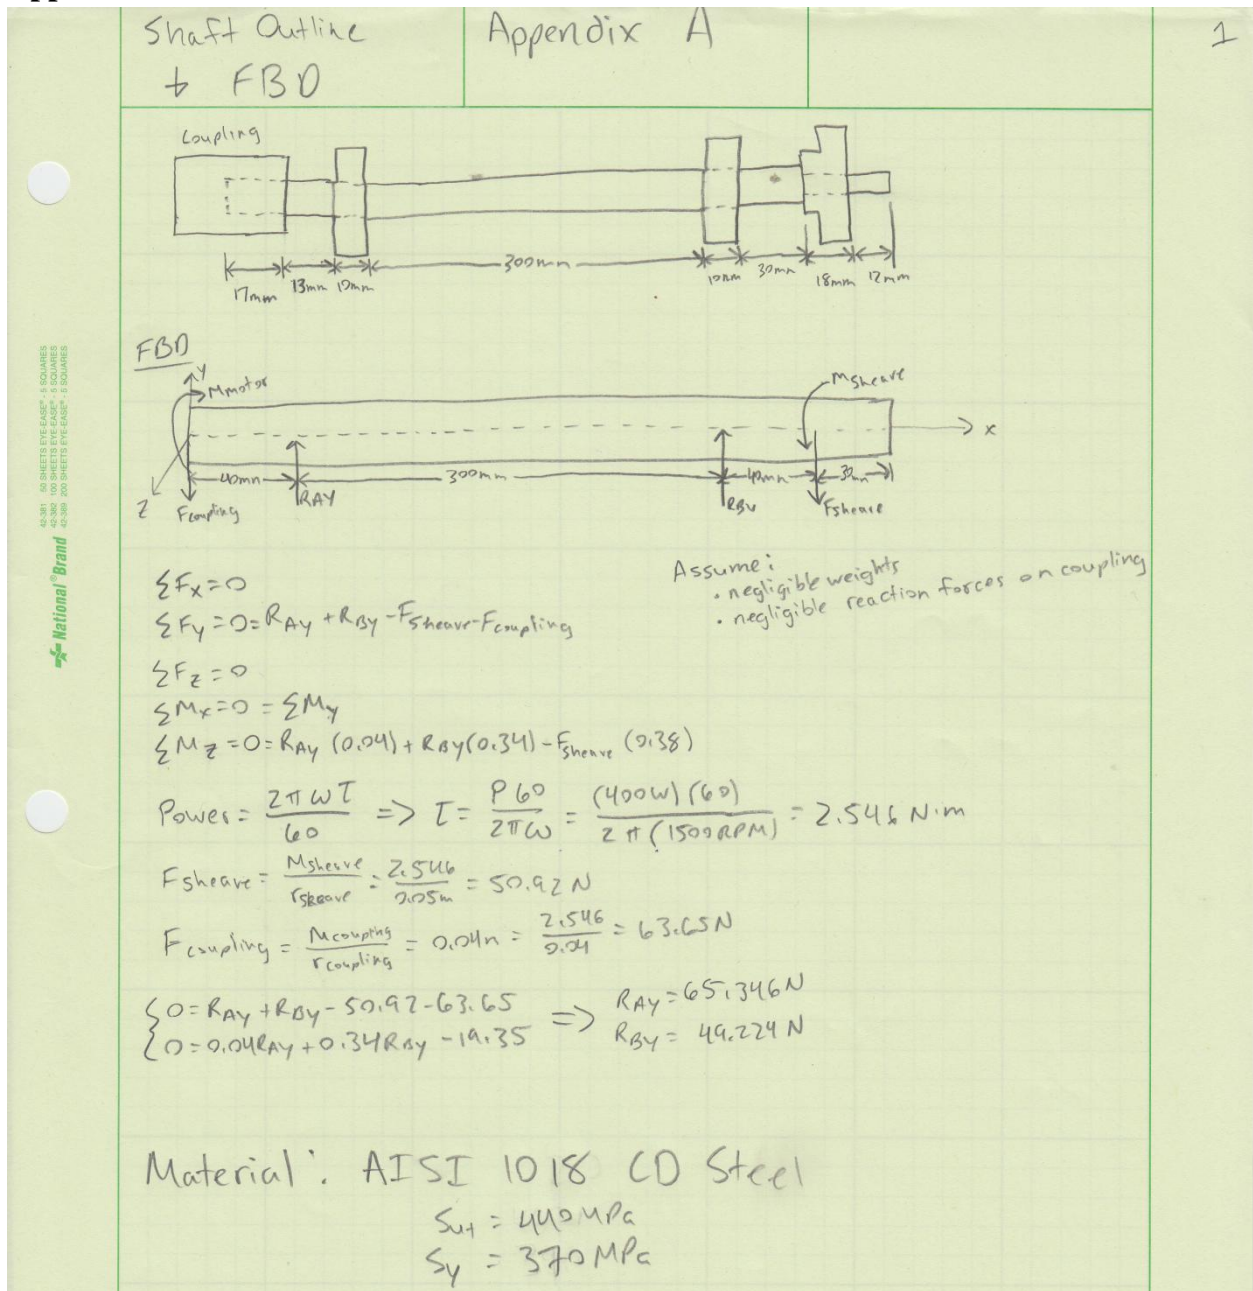 Shaft Outline
+ FBD
Appendix A
1
Coupling
300mm
17mm 13mm 10mm
10mm 30mm 18mm 12mm
FBD
Y
Mmotor
Msheave
x
40mm
300mm
40mm
30mm
Z
Fcoupling
RAY
RBY
Fsheave
Assume:
• negligible weights
• negligible reaction forces on coupling
ΣFx=0
ΣFy=0=RAy+RBy-Fsheave-Fcoupling
ΣFz=0
ΣMx=0=ΣMy
ΣMz=0=RAy(0.04)+RBy(0.34)-Fsheave(0.38)
Power = 2πωτ/60 => τ = P60/2πω = (400W)(60)/2π(1500RPM) = 2.546 N·m
Fsheave = Msheave/rsheave = 2.546/0.05m = 50.92N
Fcoupling = Mcoupling/rcoupling = 0.04m = 2.546/0.04 = 63.65N
{0=RAy+RBy-50.92-63.65 => RAY=65.346N
{0=0.04RAy+0.34RBy-19.35 RBY=49.224N
Material: AISI 1018 CD Steel
Sut = 440MPa
Sy = 370MPa
42-381 50 SHEETS EYE-EASE® - 5 SQUARES
42-382 100 SHEETS EYE-EASE® - 5 SQUARES
42-389 200 SHEETS EYE-EASE® - 5 SQUARES
National® Brand